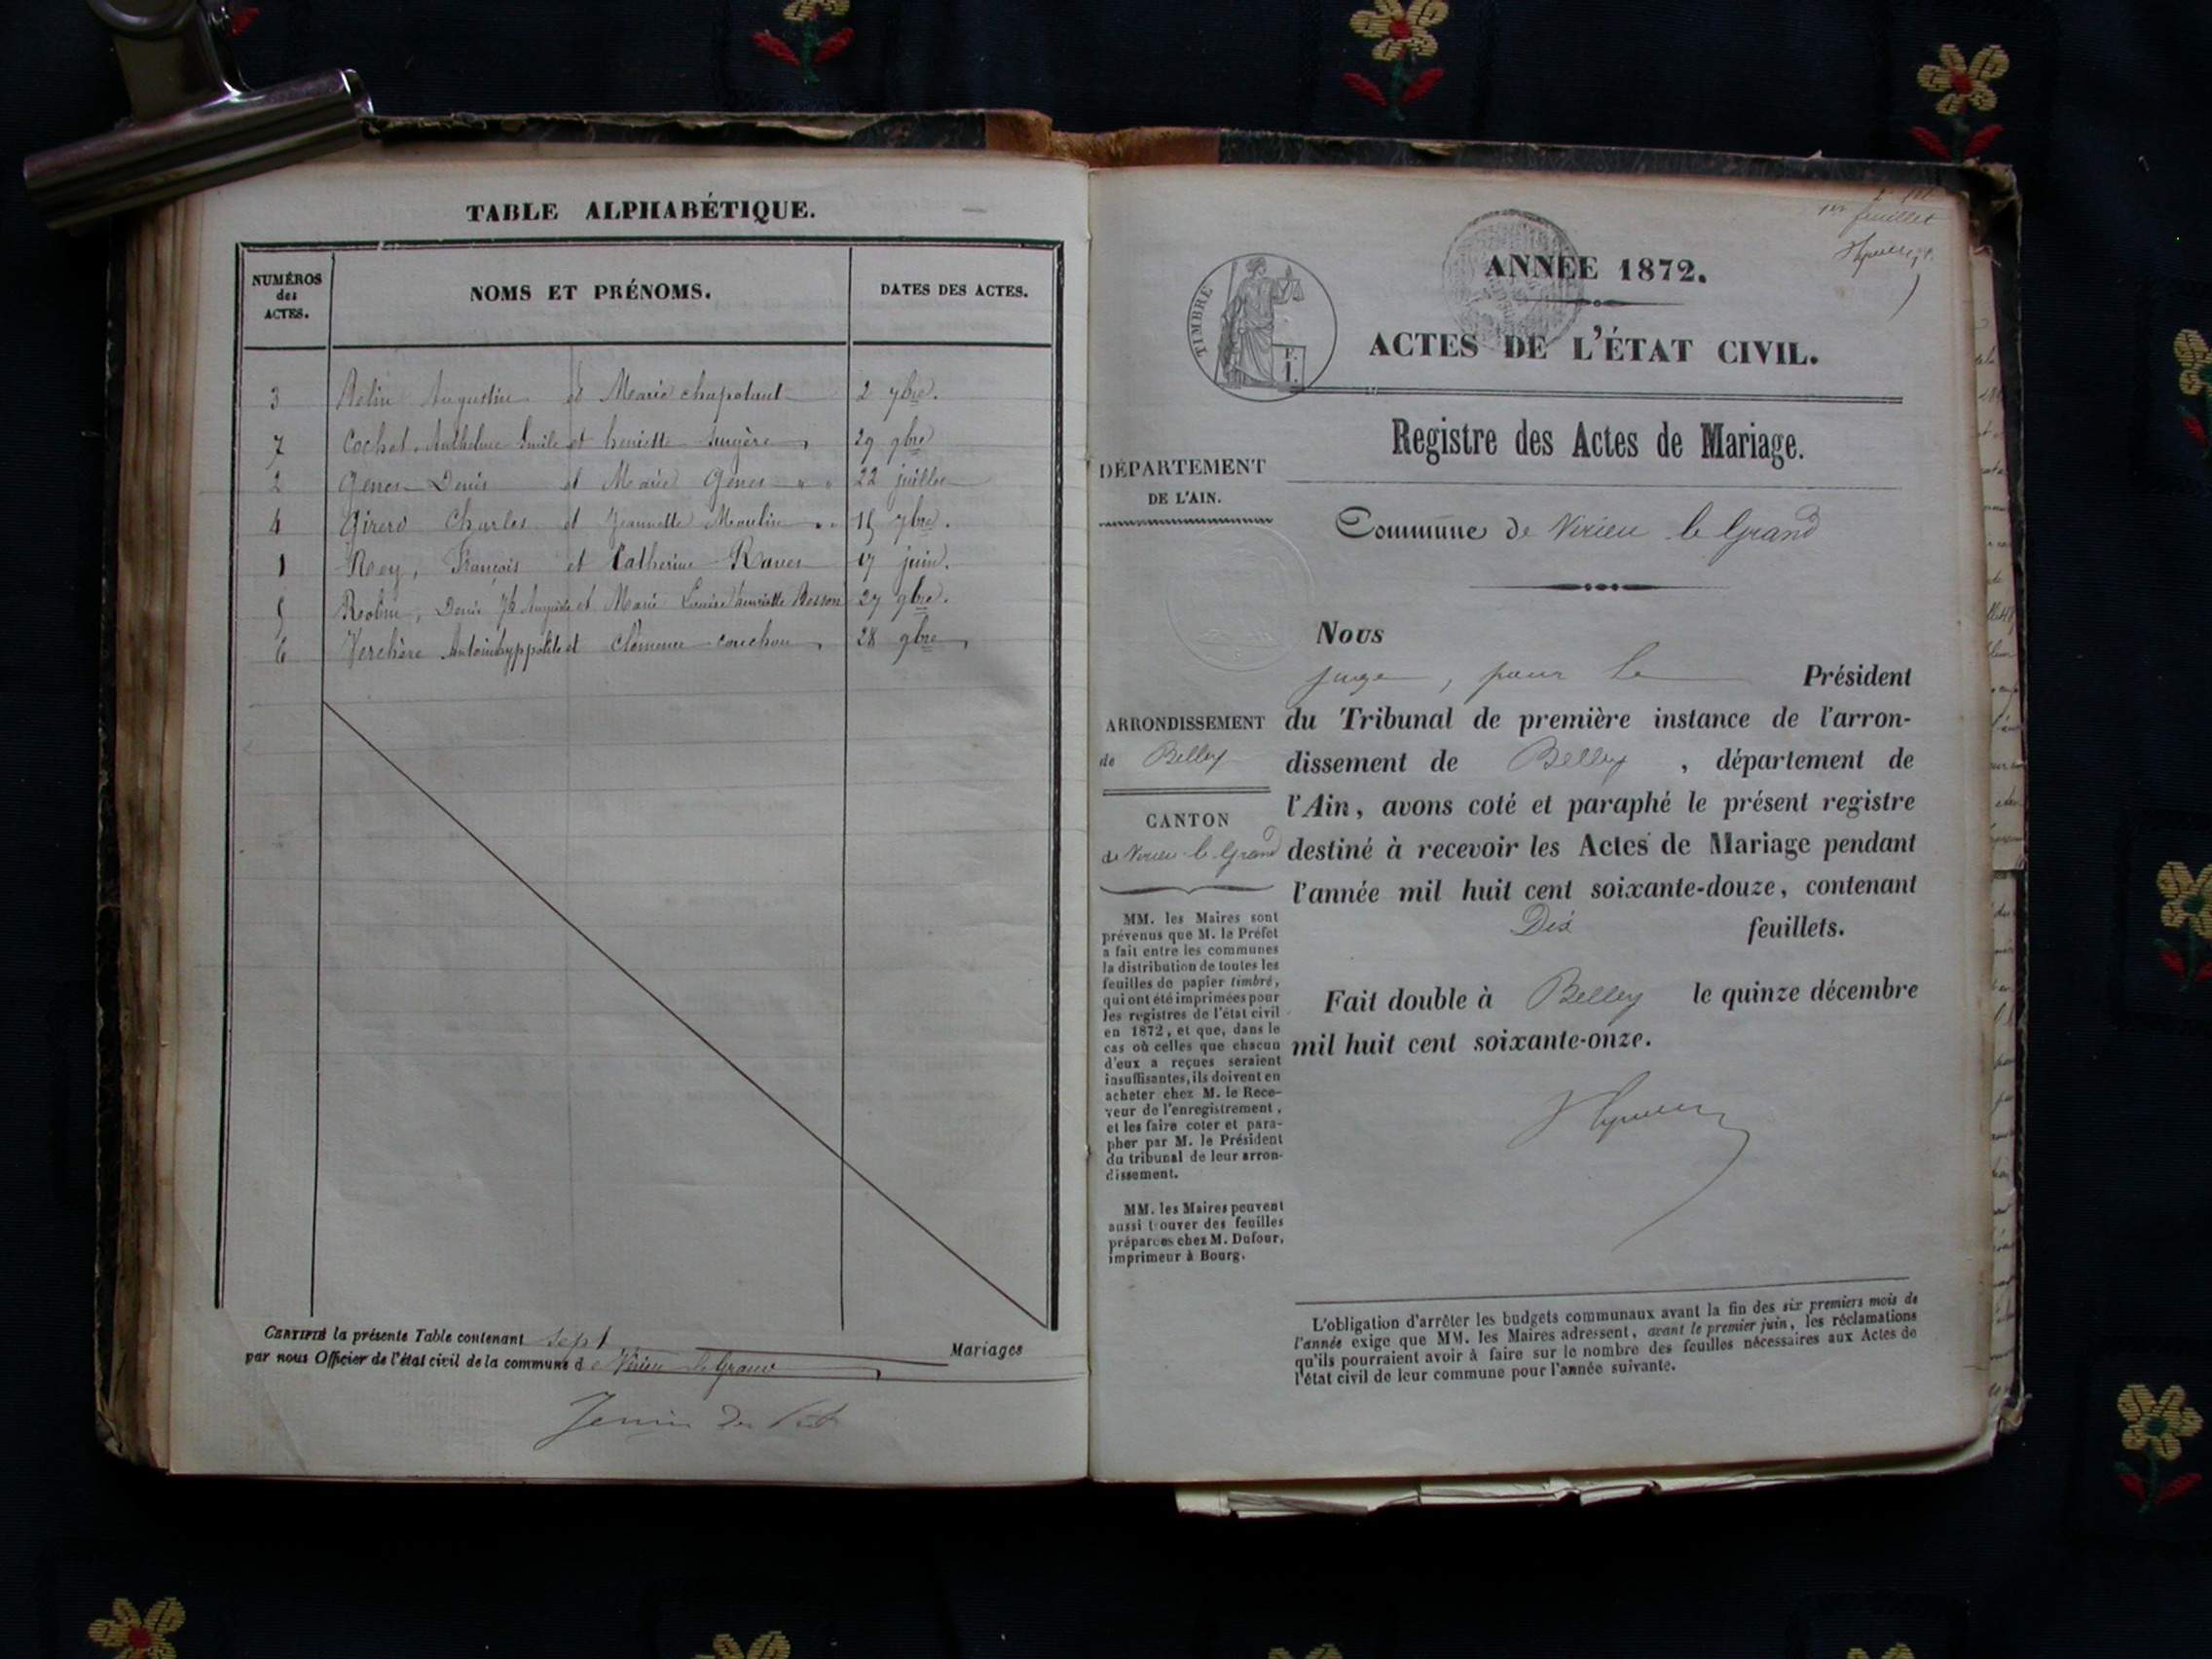 TABLE ALPHABÉTIQUE.
NUMÉROS des ACTES. NOMS ET PRÉNOMS. DATES DES ACTES.
3 Augustin et Marie chapotant 2 7bre.
7 Cochet Anthelme Emile et henriette 29 9bre
2 Genes Denis et Marie Genes " " 22 juillet
4 Girerd Charles et Jeannette Moulin " " 15 7bre.
1 Rey, François et Catherine 17 juin.
5 Denis et Marie Louise henriette Besson 27 9bre.
6 Verchère Antoine hyppolite et Clémence couchon, 28 9bre,
CERTIFIÉ la présente Table contenant sept Mariages
par nous Officier de l'état civil de la commune de Virieu le Grand
1er feuillet
TIMBRE
F.
1.
ANNÉE 1872.
ACTES DE L'ÉTAT CIVIL.
Registre des Actes de Mariage.
DÉPARTEMENT
DE L'AIN.
Commune de Virieu le Grand
Nous
juge, pour le Président
du Tribunal de première instance de l'arron-
dissement de Belley, département de
l'Ain, avons coté et paraphé le présent registre
destiné à recevoir les Actes de Mariage pendant
l'année mil huit cent soixante-douze, contenant
Dix feuillets.
Fait double à Belley le quinze décembre
mil huit cent soixante-onze.
ARRONDISSEMENT
de Belley
CANTON
de Virieu le Grand
MM. les Maires sont
prévenus que M. le Préfet
a fait entre les communes
la distribution de toutes les
feuilles de papier timbré,
qui ont été imprimées pour
les registres de l'état civil
en 1872, et que, dans le
cas où celles que chacun
d'eux a reçues seraient
insuffisantes, ils doivent en
acheter chez M. le Rece-
veur de l'enregistrement,
et les faire coter et para-
pher par M. le Président
du tribunal de leur arron-
dissement.
MM. les Maires peuvent
aussi trouver des feuilles
préparées chez M. Dufour,
imprimeur à Bourg.
L'obligation d'arrêter les budgets communaux avant la fin des six premiers mois de
l'année exige que MM. les Maires adressent, avant le premier juin, les réclamations
qu'ils pourraient avoir à faire sur le nombre des feuilles nécessaires aux Actes de
l'état civil de leur commune pour l'année suivante.